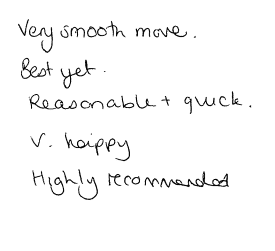 Very smooth move.
Best yet.
Reasonable + quick.
V. happy
Highly recommended